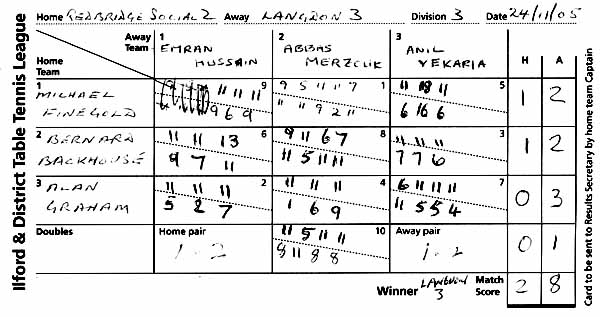 Ilford & District Table Tennis League
Home REDBRIDGE SOCIAL 2 Away LANGDON 3 Division 3 Date 24/11/05
Away Team
Home Team
1 EMRAN HUSSAIN
2 ABBAS MERZCLIK
3 ANIL VEKARIA
H A
1 MICHAEL FINEGOLD
9 11 11 11
9 6 9
1 9 5 11 11 7
11 11 9 2 11
5 11 18 11
6 16 6
1 2
2 BERNARD BACKHOUSE
6 11 11 13
9 7 11
8 9 11 6 7
11 5 11 11
3 11 11 11
7 7 6
1 2
3 ALAN GRAHAM
2 11 11 11
5 2 7
4 11 11 11
1 6 9
7 6 11 11 11
11 5 5 4
0 3
Doubles
Home pair
1 - 2
10 11 5 11 11
8 11 8 8
Away pair
1 - 2
0 1
Winner LANGDON 3 Match Score 2 8
Card to be sent to Results Secretary by home team Captain